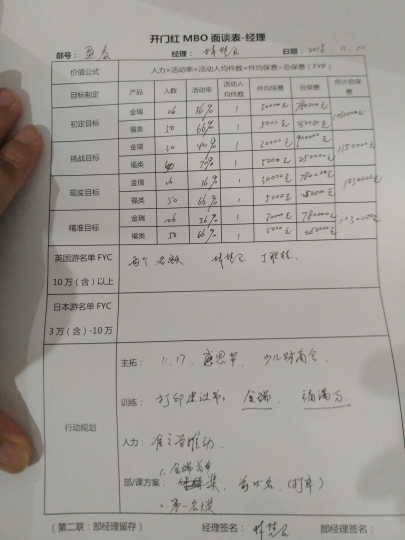 开门红 MBO 面谈表-经理
部号： 经理： 日期：2018.11.10
价值公式 人力×活动率×活动人均件数×件均保费=总保费（FYP）
目标制定 产品 人数 活动率 活动人均件数 件均保费 总保费 合计总保费
初定目标 金瑞 26 36% 1 30000元 780000元 1030000元
福类 50 66% 1 5000元 250000元
挑战目标 金瑞 30 40% 1 30000元 900000元 1150000元
福类 70% 1 5000元 250000元
现实目标 金瑞 26 36% 1 30000元 780000元 1030000元
福类 50 66% 1 5000元 250000元
精准目标 金瑞 26 36% 1 30000元 780000元 1030000元
福类 50 66% 1 5000元 250000元
英国游名单 FYC
10 万（含）以上
两个名额
日本游名单 FYC
3 万（含）-10 万
行动规划
主拓： 11.17. 感恩节 少儿财商会
训练： 打印建议书： 金瑞 福满
人力：
部/课方案：
第一名奖
（第二联：部经理留存） 经理签名： 部经理签名：